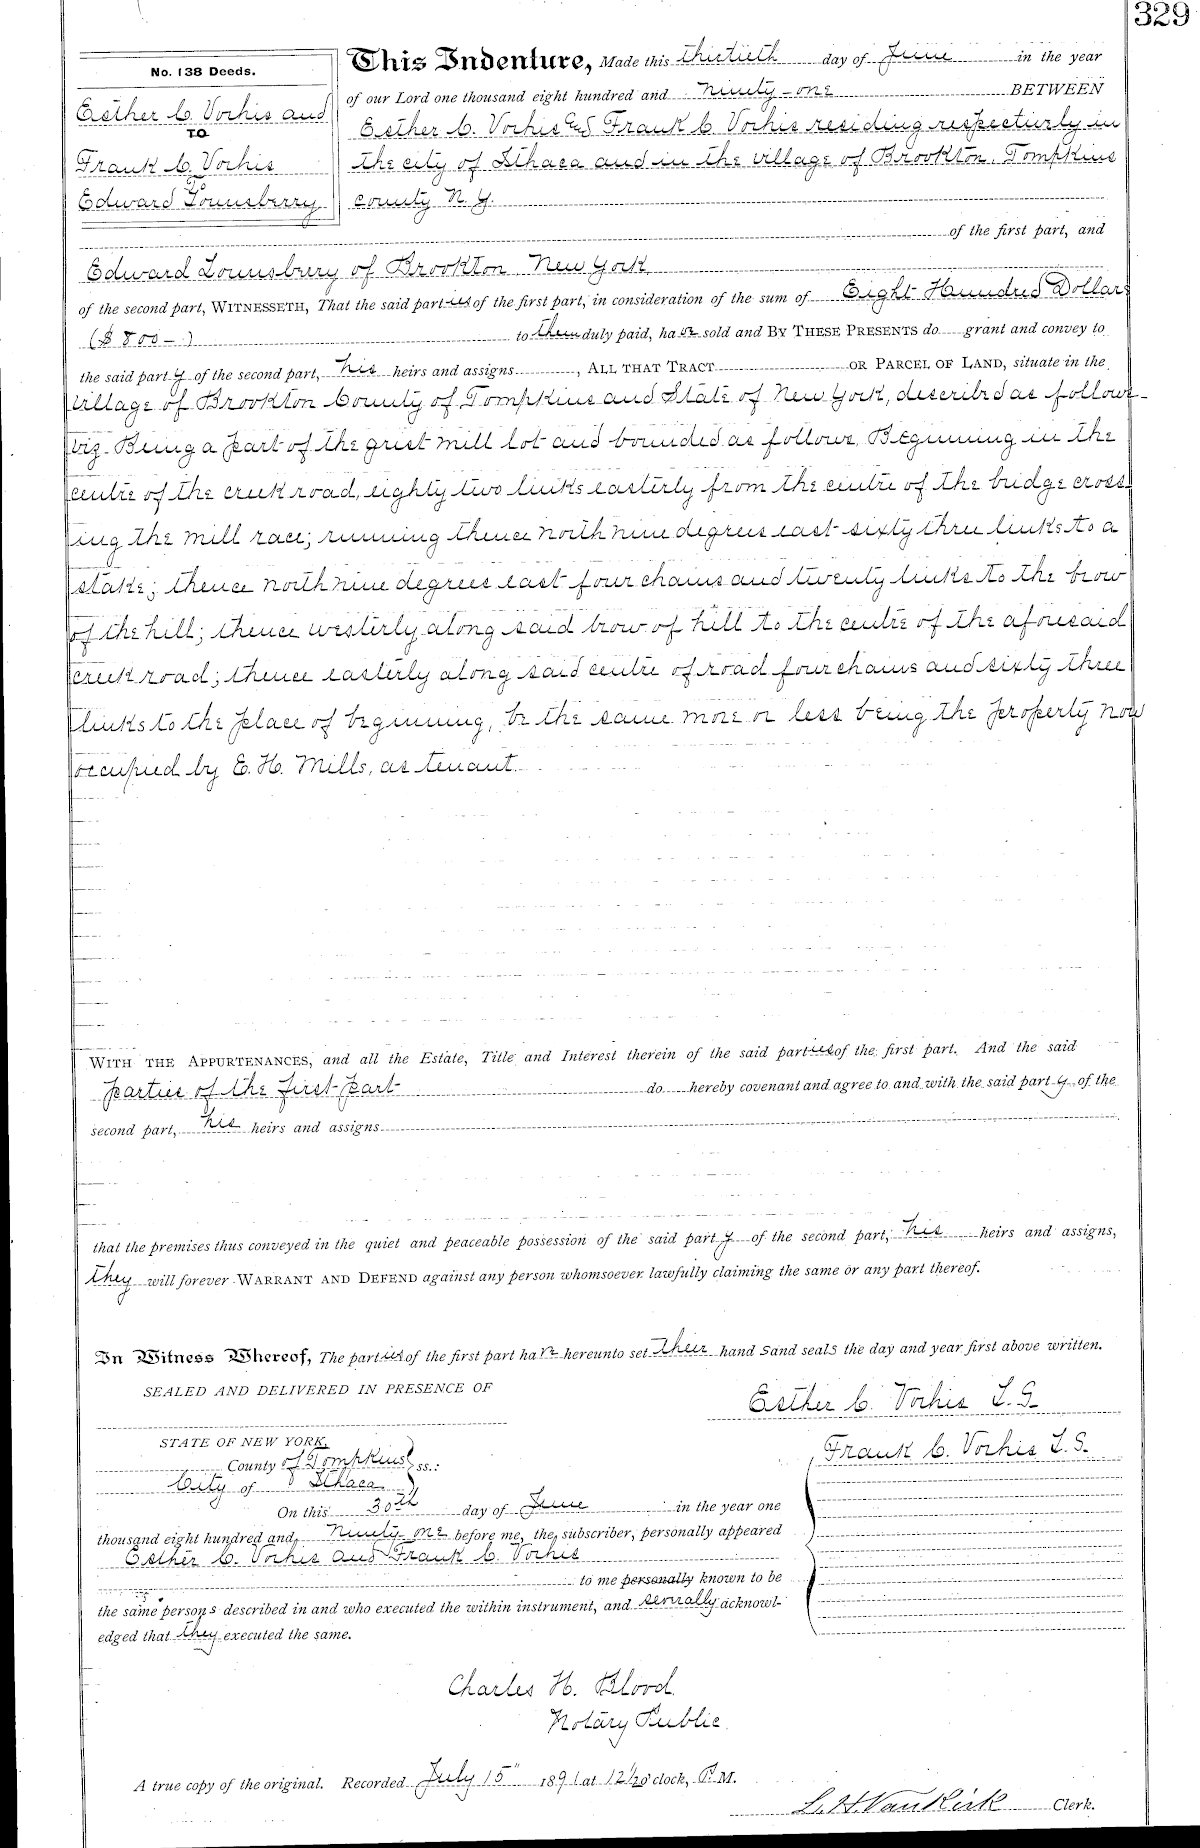 329
No. 138 Deeds.
Esther C. Vorhis and
TO
Frank C. Vorhis
To
Edward Lounsberry
This Indenture, Made this thirtieth day of June in the year
of our Lord one thousand eight hundred and ninety-one BETWEEN
Esther C. Vorhis and Frank C. Vorhis residing respectively in
the city of Ithaca and in the village of Brookton, Tompkins
county N.Y.
of the first part, and
Edward Lounsbury of Brookton New York
of the second part, WITNESSETH, That the said parties of the first part, in consideration of the sum of Eight Hundred Dollars
($800-) to them duly paid, have sold and BY THESE PRESENTS do grant and convey to
the said party of the second part, his heirs and assigns, ALL THAT TRACT OR PARCEL OF LAND, situate in the
village of Brookton County of Tompkins and State of New York, described as follows-
viz. Being a part of the grist mill lot and bounded as follows, Beginning in the
centre of the creek road, eighty two links easterly from the centre of the bridge cross-
ing the mill race; running thence north nine degrees east sixty three links to a
stake; thence north nine degrees east four chains and twenty links to the brow
of the hill; thence westerly along said brow of hill to the centre of the aforesaid
creek road; thence easterly along said centre of road four chains and sixty three
links to the place of beginning, be the same more or less being the property now
occupied by E. H. Mills, as tenant.
WITH THE APPURTENANCES, and all the Estate, Title and Interest therein of the said parties of the first part. And the said
parties of the first part do hereby covenant and agree to and with the said party of the
second part, his heirs and assigns
that the premises thus conveyed in the quiet and peaceable possession of the said party of the second part, his heirs and assigns,
they will forever WARRANT AND DEFEND against any person whomsoever lawfully claiming the same or any part thereof.
In Witness Whereof, The parties of the first part have hereunto set their hands and seals the day and year first above written.
SEALED AND DELIVERED IN PRESENCE OF
Esther C. Vorhis L.S.
Frank C. Vorhis L.S.
STATE OF NEW YORK,
County of Tompkins ss.:
City of Ithaca
On this 30th day of June in the year one
thousand eight hundred and ninety one before me, the subscriber, personally appeared
Esther C. Vorhis and Frank C. Vorhis
to me personally known to be
the same persons described in and who executed the within instrument, and severally acknowl-
edged that they executed the same.
Charles H. Blood
Notary Public
A true copy of the original. Recorded July 15" 1891 at 12 1/2 o'clock, P.M.
L. H. VanKirk Clerk.